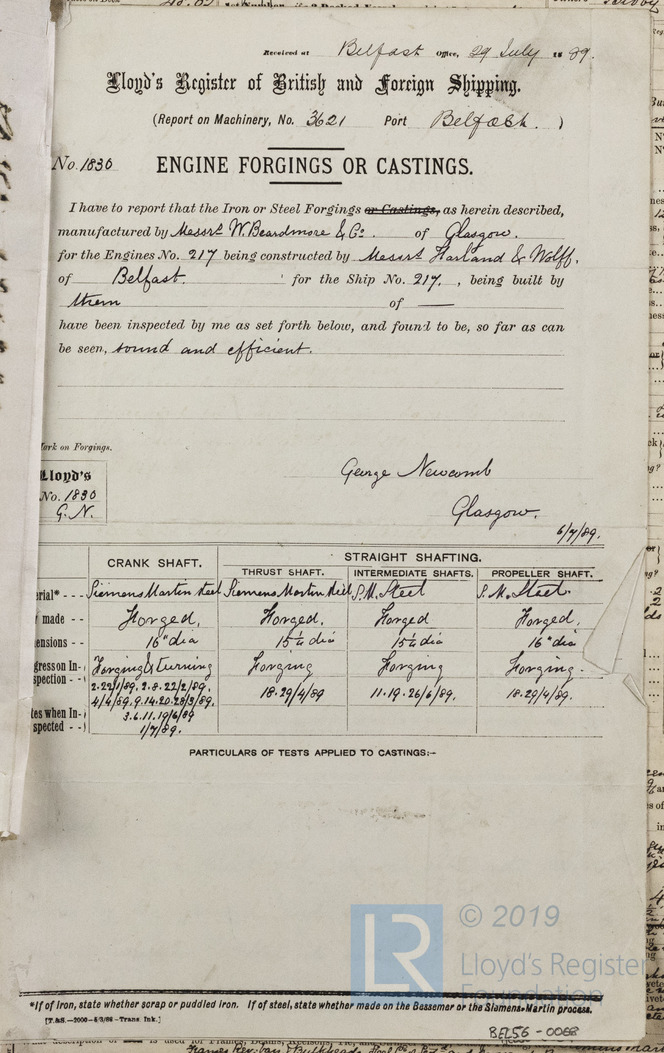 Received at Belfast Office, 29 July 1889.
Lloyd's Register of British and Foreign Shipping.
(Report on Machinery, No. 3621 Port Belfast.)
No. 1830 ENGINE FORGINGS OR CASTINGS.
I have to report that the Iron or Steel Forgings or Castings, as herein described,
manufactured by Messrs W. Beardmore & Co. of Glasgow.
for the Engines No. 217 being constructed by Messrs Harland & Wolff,
of Belfast. for the Ship No. 217, being built by
them of —
have been inspected by me as set forth below, and found to be, so far as can
be seen, sound and efficient.
Mark on Forgings.
Lloyd's
No. 1830
G. N.
George Newcomb
Glasgow.
6/7/89.
CRANK SHAFT. STRAIGHT SHAFTING.
THRUST SHAFT. INTERMEDIATE SHAFTS. PROPELLER SHAFT.
erial* - - - Siemens Martin Steel Siemens Martin Steel S. M. Steel S. M. Steel.
made - - Forged. Forged. Forged Forged.
ensions - - 16" dia 15¼ dia 15¼ dia 16" dia
gress on In- Forging & turning Forging Forging Forging.
spection - - 2.22/1/89. 2.8.22/2/89. 18.29/4/89 11.19.26/6/89. 18.29/4/89.
4/4/89. 9.14.20.28/3/89.
tes when In- 3.6.11.19/6/89
spected - - 1/7/89.
PARTICULARS OF TESTS APPLIED TO CASTINGS:-
© 2019
LR
Lloyd's Register
Foundation
*If of Iron, state whether scrap or puddled iron. If of steel, state whether made on the Bessemer or the Siemens-Martin process.
[T.&S.—2000—5/3/88—Trans. Ink.]
BEL56 - 0068